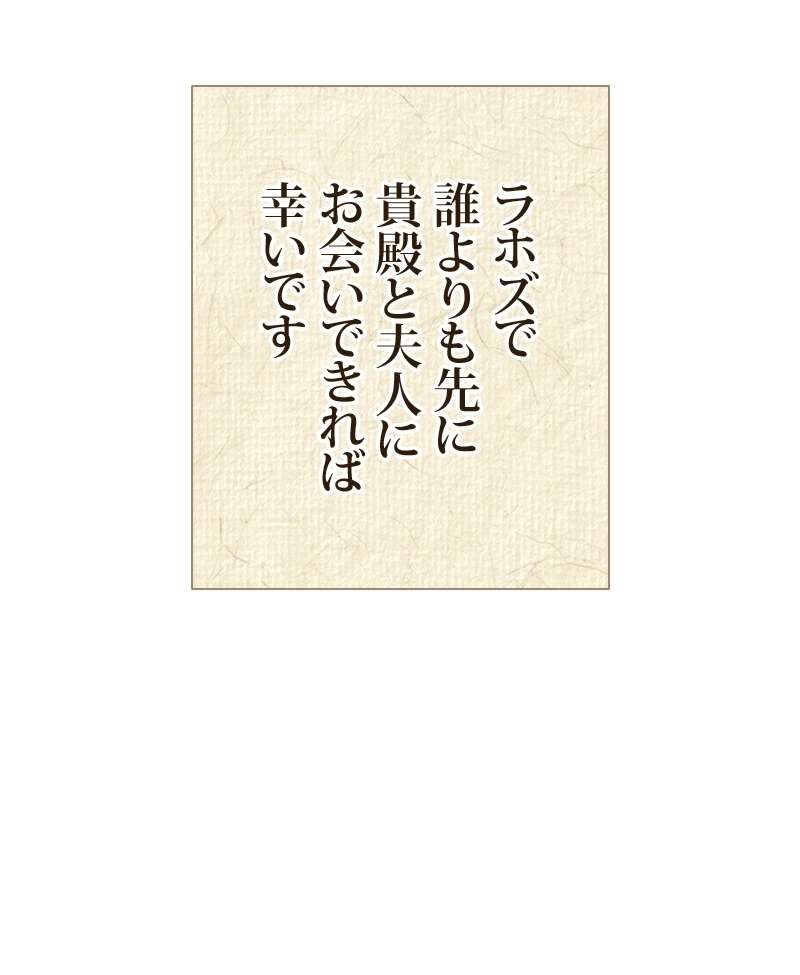 ラホズで
誰よりも先に
貴殿と夫人に
お会いできれば
幸いです